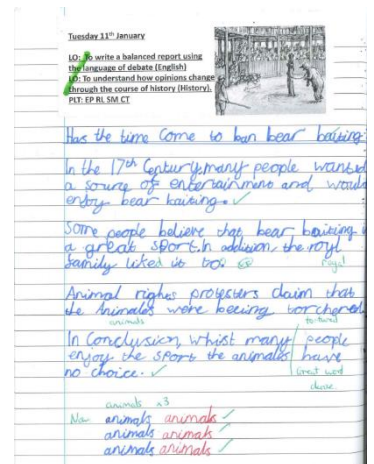 Tuesday 11th January
LO: To write a balanced report using
the language of debate (English)
LO: To understand how opinions change
through the course of history (History).
PLT: EP RL SM CT
Has the time come to ban bear baiting
In the 17th Century, many people wanted
a source of entertainment and would
enjoy bear baiting. ✓
Some people believe that bear baiting is
a great sport. In addition, the royl
family liked it to.
royal
Animal rights protesters claim that
the Animales were beeing torchered
animals tortured
In Conclusion, Whilst many people
enjoy the sport the animales have
no choice. ✓
Great word
choice
animals x3
Now animals animals ✓
animals animals ✓
animals animals ✓